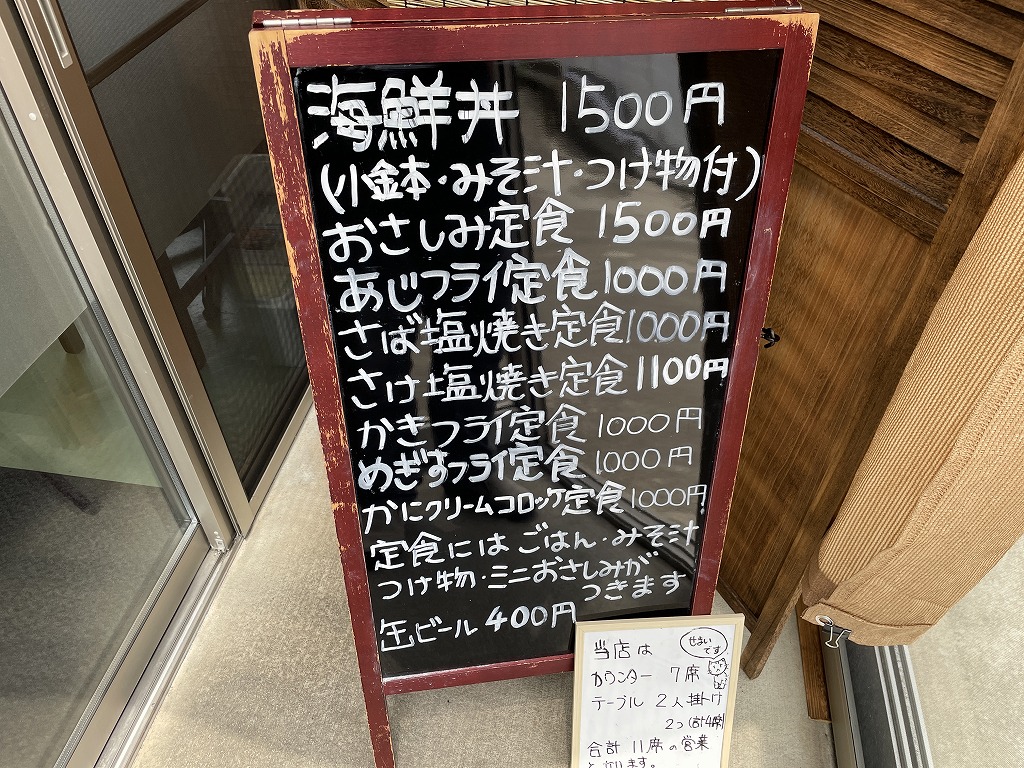 海鮮丼 1500円
(小鉢・みそ汁・つけ物付)
おさしみ定食 1500円
あじフライ定食 1000円
さば塩焼き定食 1000円
さけ塩焼き定食 1100円
かきフライ定食 1000円
めぎすフライ定食 1000円
かにクリームコロッケ定食 1000円
定食にはごはん・みそ汁
つけ物・ミニおさしみが
つきます
缶ビール 400円
せまい
です
当店は
カウンター 7席
テーブル 2人掛け
2つ(合計4席)
合計 11席の営業
となります。